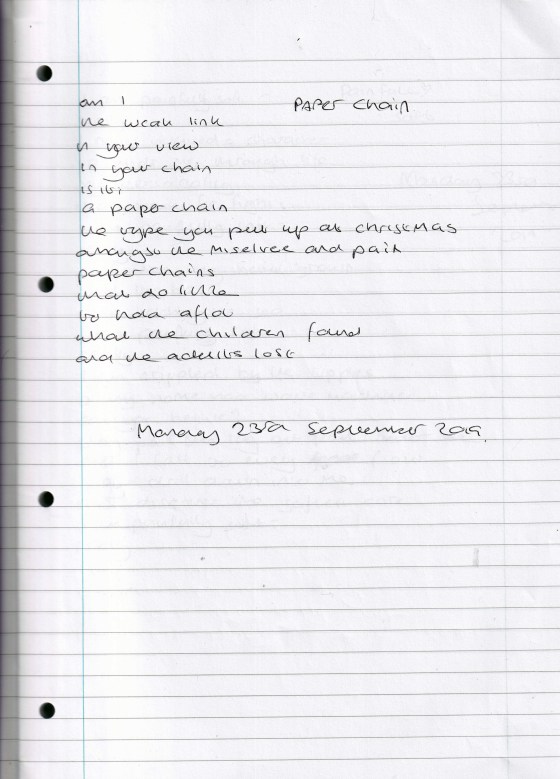 PAPER Chain
am I
the weak link
in your view
in your chain
is it
a paper chain
the type you put up at christmas
amongst the Miseltree and pain
paper chains
that do little
to hold aflot
what the children found
and the adults lost
Monday 23rd September 2019